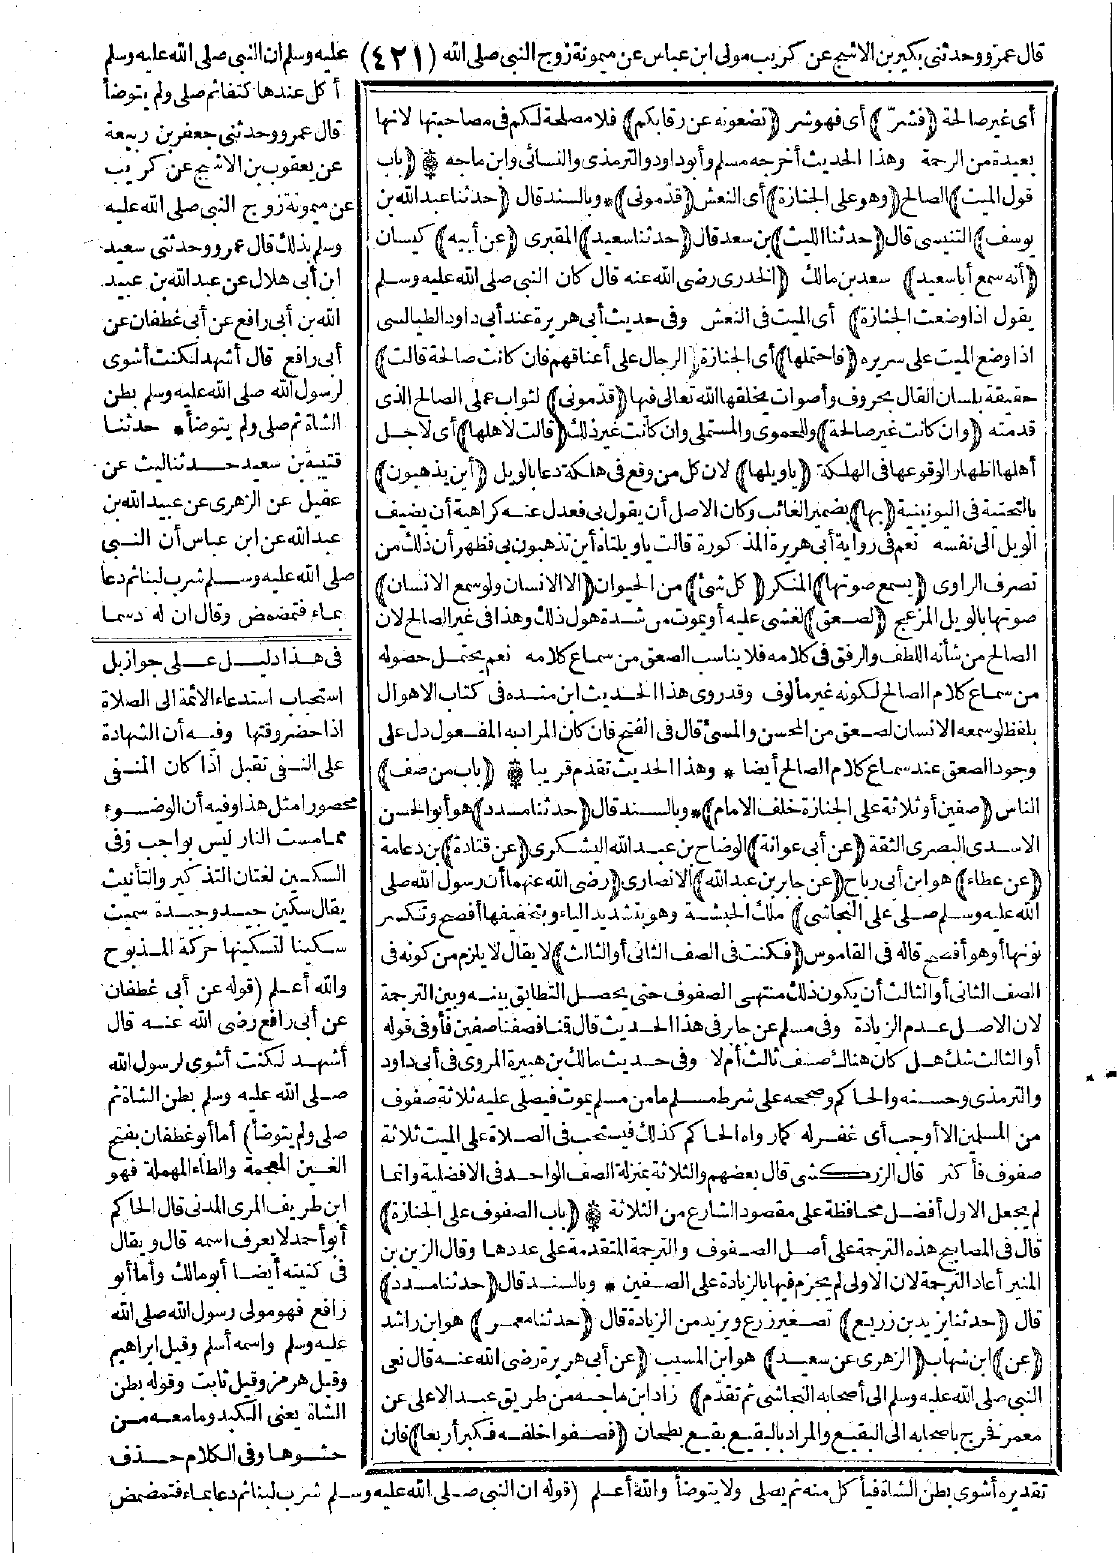 قال عمرو وحدثنى بكير بن الاشج عن كريب مولى ابن عباس عن ميمونة زوج النبى صلى الله (٤٢١) عليه وسلم ان النبى صلى الله عليه وسلم
أى غير صالحة (فشرّ) أى فهو شر (تضعونه عن رقابكم) فلا مصلحة لكم فى مصاحبتها لانها
بعيدة من الرحمة وهذا الحديث أخرجه مسلم وأبو داود والترمذى والنسائى وابن ماجه * (باب
قول الميت) الصالح (وهو على الجنازة) أى النعش (قدّمونى) * وبالسند قال (حدثنا عبد الله بن
يوسف) التنيسى قال (حدثنا الليث) بن سعد قال (حدثنا سعيد) المقبرى (عن أبيه) كيسان
(أنه سمع أبا سعيد) سعد بن مالك (الخدرى رضى الله عنه قال كان النبى صلى الله عليه وسلم
يقول اذا وضعت الجنازة) أى الميت فى النعش وفى حديث أبى هريرة عند أبى داود الطيالسى
اذا وضع الميت على سريره (فاحتملها) أى الجنازة (الرجال على أعناقهم فان كانت صالحة قالت)
حقيقة بلسان القال بحروف وأصوات يخلقها الله تعالى فيها (قدّمونى) لثواب عملى الصالح الذى
قدمته (وان كانت غير صالحة) وللحموى والمستملى وان كانت غير ذلك (قالت لاهلها) أى لاجل
أهلها اظهار الوقوعها فى الهلكة (ياويلها) لان كل من وقع فى هلكة دعا بالويل (أين يذهبون)
بالتحتية فى اليونينية (بها) بضمير الغائب وكان الاصل أن يقول بى فعدل عنه كراهية أن يضيف
الويل الى نفسه نعم فى رواية أبى هريرة المذكورة قالت ياويلتاه أين تذهبون بى فظهر أن ذلك من
تصرف الراوى (يسمع صوتها) المنكر (كل شئ) من الحيوان (الا الانسان ولو سمع الانسان)
صوتها بالويل المزعج (لصعق) لغشى عليه أو يموت من شدة هول ذلك وهذا فى غير الصالح لان
الصالح من شأنه اللطف والرفق فى كلامه فلا يناسب الصعق من سماع كلامه نعم يحتمل حصوله
من سماع كلام الصالح لكونه غير مألوف وقد روى هذا الحديث ابن منده فى كتاب الاهوال
بلفظ لو سمعه الانسان لصعق من المحسن والمسئ قال فى الفتح فان كان المراد به المفعول دل على
وجود الصعق عند سماع كلام الصالح أيضا * وهذا الحديث تقدم قريبا * (باب من صف)
الناس (صفين أو ثلاثة على الجنازة خلف الامام) * وبالسند قال (حدثنا مسدد) هو أبو الحسن
الاسدى البصرى الثقة (عن أبى عوانة) الوضاح بن عبد الله اليشكرى (عن قتادة) بن دعامة
(عن عطاء) هو ابن أبى رباح (عن جابر بن عبد الله) الانصارى (رضى الله عنهما أن رسول الله صلى
الله عليه وسلم صلى على النجاشى) ملك الحبشة وهو بتشديد الياء وبتخفيفها أفصح وتكسر
نونها أو هو أفصح قاله فى القاموس (فكنت فى الصف الثانى أو الثالث) لا يقال لا يلزم من كونه فى
الصف الثانى أو الثالث أن يكون ذلك منتهى الصفوف حتى يحصل التطابق بينه وبين الترجمة
لان الاصل عدم الزيادة وفى مسلم عن جابر فى هذا الحديث قال قمنا فصفنا صفين فأو فى قوله
أو الثالث شك هل كان هناك صف ثالث أم لا وفى حديث مالك بن هبيرة المروى فى أبى داود
والترمذى وحسنه والحاكم وصححه على شرط مسلم ما من مسلم يموت فيصلى عليه ثلاثة صفوف
من المسلمين الا أوجب أى غفر له كما رواه الحاكم كذلك فيستحب فى الصلاة على الميت ثلاثة
صفوف فأكثر قال الزركشى قال بعضهم والثلاثة بمنزلة الصف الواحد فى الافضلية وانما
لم يجعل الاول أفضل محافظة على مقصود الشارع من الثلاثة * (باب الصفوف على الجنازة)
قال فى المصابيح هذه الترجمة على أصل الصفوف والترجمة المتقدمة على عددها وقال الزين بن
المنير أعاد الترجمة لان الاولى لم يجزم فيها بالزيادة على الصفين * وبالسند قال (حدثنا مسدد)
قال (حدثنا يزيد بن زريع) تصغير زرع ويزيد من الزيادة قال (حدثنا معمر) هو ابن راشد
(عن) ابن شهاب (الزهرى عن سعيد) هو ابن المسيب (عن أبى هريرة رضى الله عنه قال نعى
النبى صلى الله عليه وسلم الى أصحابه النجاشى ثم تقدم) زاد ابن ماجه من طريق عبد الاعلى عن
معمر فخرج باصحابه الى البقيع والمراد بالبقيع بقيع بطحان (فصفوا خلفه فكبر أربعا) فان
أكل عندها كتفا ثم صلى ولم يتوضأ
قال عمرو وحدثنى جعفر بن ربيعة
عن يعقوب بن الاشج عن كريب
عن ميمونة زوج النبى صلى الله عليه
وسلم بذلك قال عمرو وحدثنى سعيد
ابن أبى هلال عن عبد الله بن عبيد
الله بن أبى رافع عن أبى غطفان عن
أبى رافع قال أشهد لكنت أشوى
لرسول الله صلى الله عليه وسلم بطن
الشاة ثم صلى ولم يتوضأ * حدثنا
قتيبة بن سعيد حدثنا ليث عن
عقيل عن الزهرى عن عبيد الله بن
عبد الله عن ابن عباس أن النبى
صلى الله عليه وسلم شرب لبنا ثم دعا
بماء فتمضمض وقال ان له دسما
فى هذا دليل على جواز بل
استحباب استدعاء الائمة الى الصلاة
اذا حضر وقتها وفيه أن الشهادة
على النفى تقبل اذا كان المنفى
محصورا مثل هذا وفيه أن الوضوء
مما مست النار ليس بواجب وفى
السكين لغتان التذكير والتأنيث
يقال سكين جيد وجيدة سميت
سكينا لتسكينها حركة المذبوح
والله أعلم (قوله عن أبى غطفان
عن أبى رافع رضى الله عنه قال
أشهد لكنت أشوى لرسول الله
صلى الله عليه وسلم بطن الشاة ثم
صلى ولم يتوضأ) أما أبو غطفان بفتح
الغين المعجمة والطاء المهملة فهو
ابن طريف المرى المدنى قال الحاكم
أبو أحمد لا يعرف اسمه قال ويقال
فى كنيته أيضا أبو مالك وأما أبو
رافع فهو مولى رسول الله صلى الله
عليه وسلم واسمه أسلم وقيل ابراهيم
وقيل هرمز وقيل ثابت وقوله بطن
الشاة يعنى الكبد وما معه من
حشوها وفى الكلام حذف
تقديره أشوى بطن الشاة فيأكل منه ثم يصلى ولا يتوضأ والله أعلم (قوله ان النبى صلى الله عليه وسلم شرب لبنا ثم دعا بماء فتمضمض